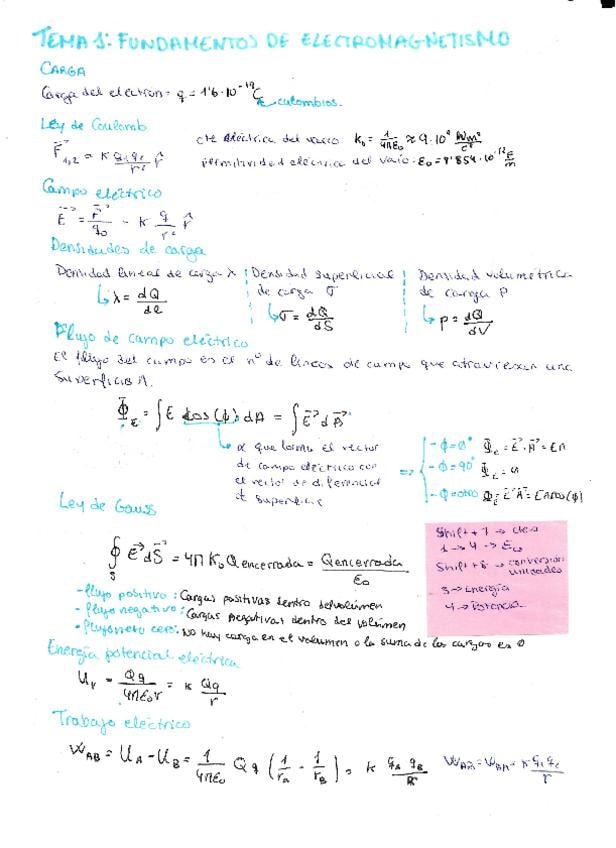 TEMA 1: FUNDAMENTOS DE ELECTROMAGNETISMO
CARGA
Carga del electron = q = 1'6·10^-19 C → culombios.
Ley de Coulomb
F⃗1,2 = K q1q2/r² r̂
cte eléctrica del vacio K0 = 1/4πε0 ≈ 9·10^9 Nm²/C²
Permitividad eléctrica del vacio · ε0 = 8'854·10^-12 F/m
Campo eléctrico
E⃗ = F⃗/q0 = K q/r² r̂
Densidades de carga
Densidad lineal de carga λ
↳ λ = dQ/dl
Densidad superficial
de carga σ
↳ σ = dQ/dS
Densidad volumétrica
de carga ρ
↳ ρ = dQ/dV
Flujo de campo eléctrico
El flujo del campo es el nº de lineas de campo que atraviesan una
superficie A.
Φ_E = ∫ E cos(ϕ) dA = ∫ E⃗ dA⃗
↳ α que forma el vector
de campo eléctrico con
el vector de diferencial
de superficie
⇒ - ϕ = 0° Φ_E = E⃗·A⃗ = EA
- ϕ = 90° Φ_E = 0
- ϕ = otro Φ_E = E⃗A⃗ = EA cos(ϕ)
Ley de Gauss
∮_S E⃗ dS⃗ = 4π K0 Qencerrada = Qencerrada/ε0
Shift + 7 → ctes
1 → 4 → ε0
Shift + 8 → conversión
unidades
3 → Energía
4 → Potencia
- flujo positivo: Cargas positivas dentro del volúmen
- flujo negativo: Cargas negativas dentro del volúmen
• flujo neto cero: No hay carga en el volumen o la suma de las cargas es 0
Energía potencial eléctrica
U_r = Qq/4πε0r = K Qq/r
Trabajo eléctrico
W_AB = U_A - U_B = 1/4πε0 Qq (1/r_A - 1/r_B) = K q_A q_B/R